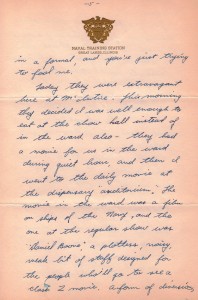 - 5 -
NAVAL TRAINING STATION
GREAT LAKES, ILLINOIS
in a formal, and you're just trying
to fool me.
Today they were extravagant
here at McIntire. This morning
they decided it was well enough to
eat at the chow hall instead of
in the ward also - they had
a movie for us in the ward
during quiet hour, and then I
went to the daily movie at
the dispensary auditorium. The
movie in the ward was a film
on ships of the Navy, and the
one at the regular show was
"Daniel Boone" a plotless, noisy,
weak bit of stuff designed for
the people who'll go to see a
class Z movie, a form of diversion